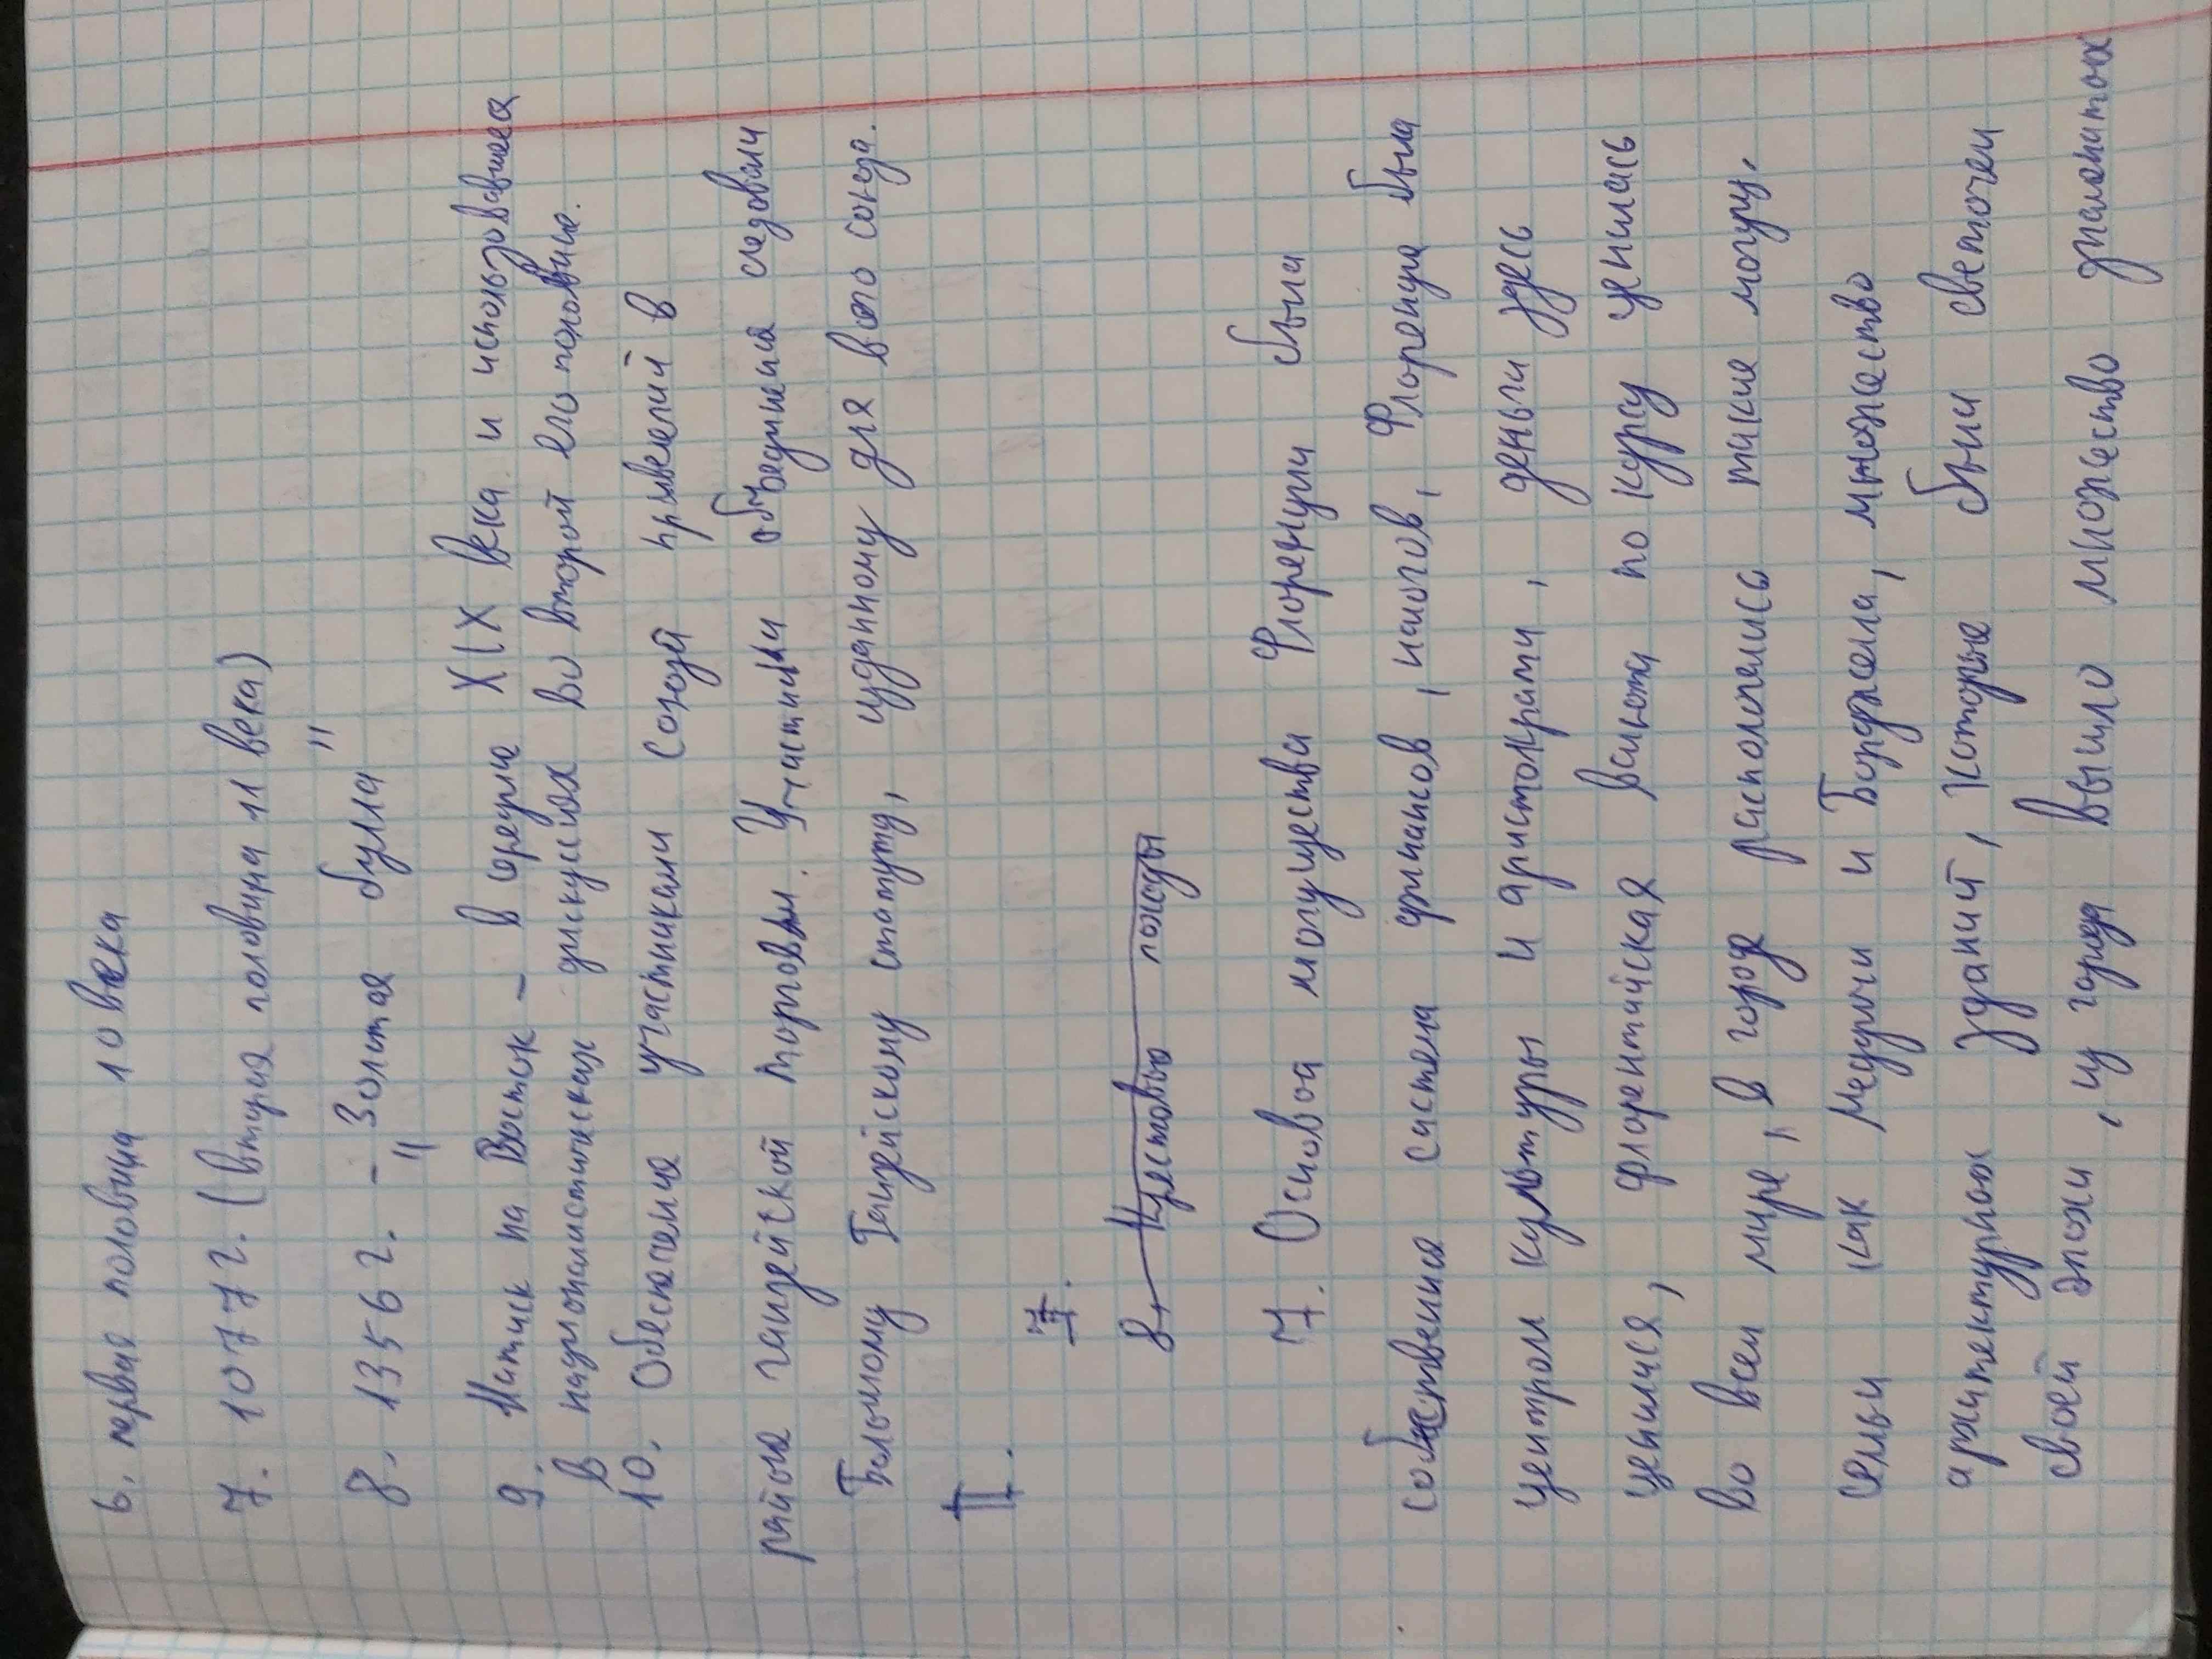 6. первая половина 10 века
7. 1077 г. (вторая половина 11 века)
8. 1356 г. - "Золотая булла"
9. Натиск на Восток - в середине XIX века и использовавшееся
в националистических дискуссиях во второй его половине.
10. Обеспечение участниками союза привелегий в
районе ганзейской торговли. Участники объединения следовали
Большому Ганзейскому статуту, изданному для всего союза.
II.
7.
8. Крестовые походы
7. Основой могущества Флоренции была
собственная система финансов, налогов, Флоренция была
центром культуры и аристократии, деньги здесь
ценились, флорентийская валюта по курсу ценилась
во всем мире, в город располагались такие
семьи как Медичи и Борджела, множество
архитектурных зданий, которые были светочем
своей эпохи, из города вышло множество знаменитых